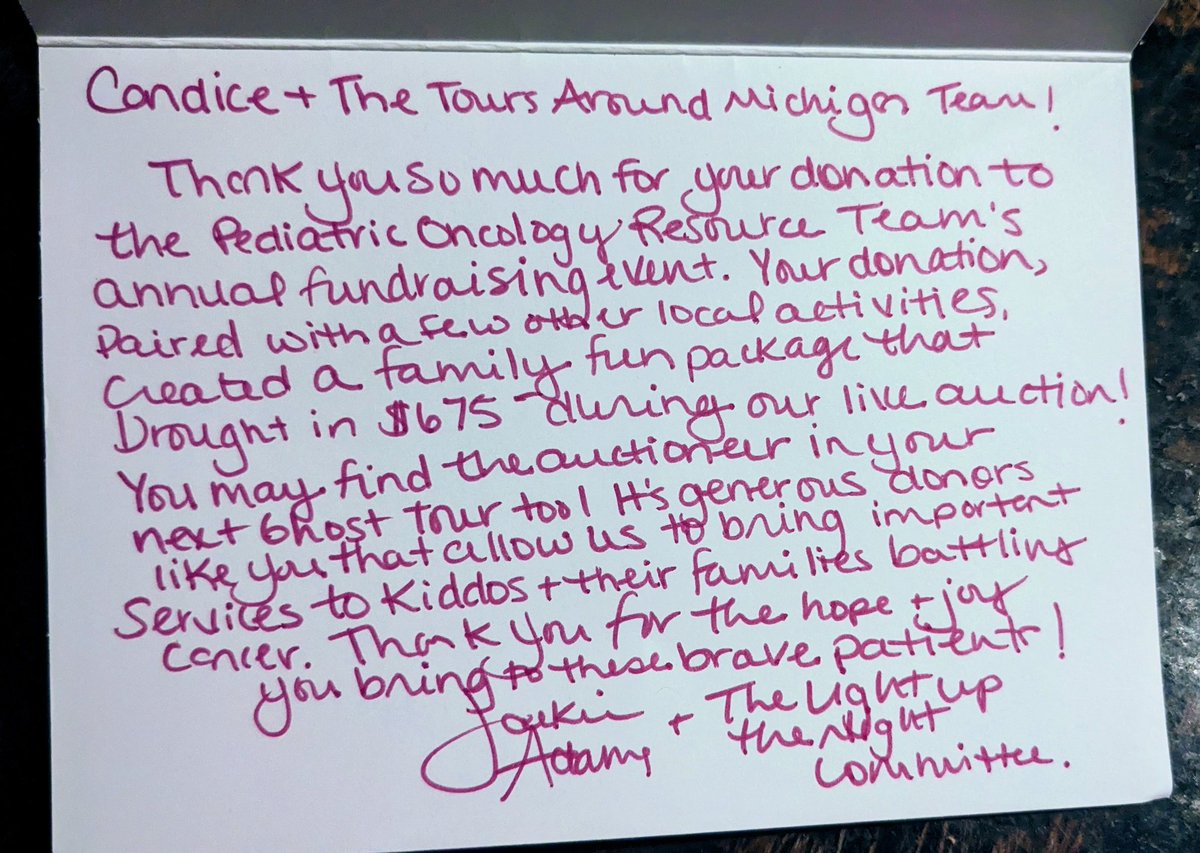 Candice + The Tours Around Michigan Team!
Thank you so much for your donation to
the Pediatric Oncology Resource Team's
annual fundraising event. Your donation,
Paired with a few other local activities,
created a family fun package that
brought in $675 - during our live auction!
You may find the auctioneer in your
next Ghost Tour too! It's generous donors
like you that allow us to bring important
Services to Kiddos + their families battling
cancer. Thank you for the hope + joy
you bring to these brave patients!
Jackie + The Light up
Adams the Night
Committee.